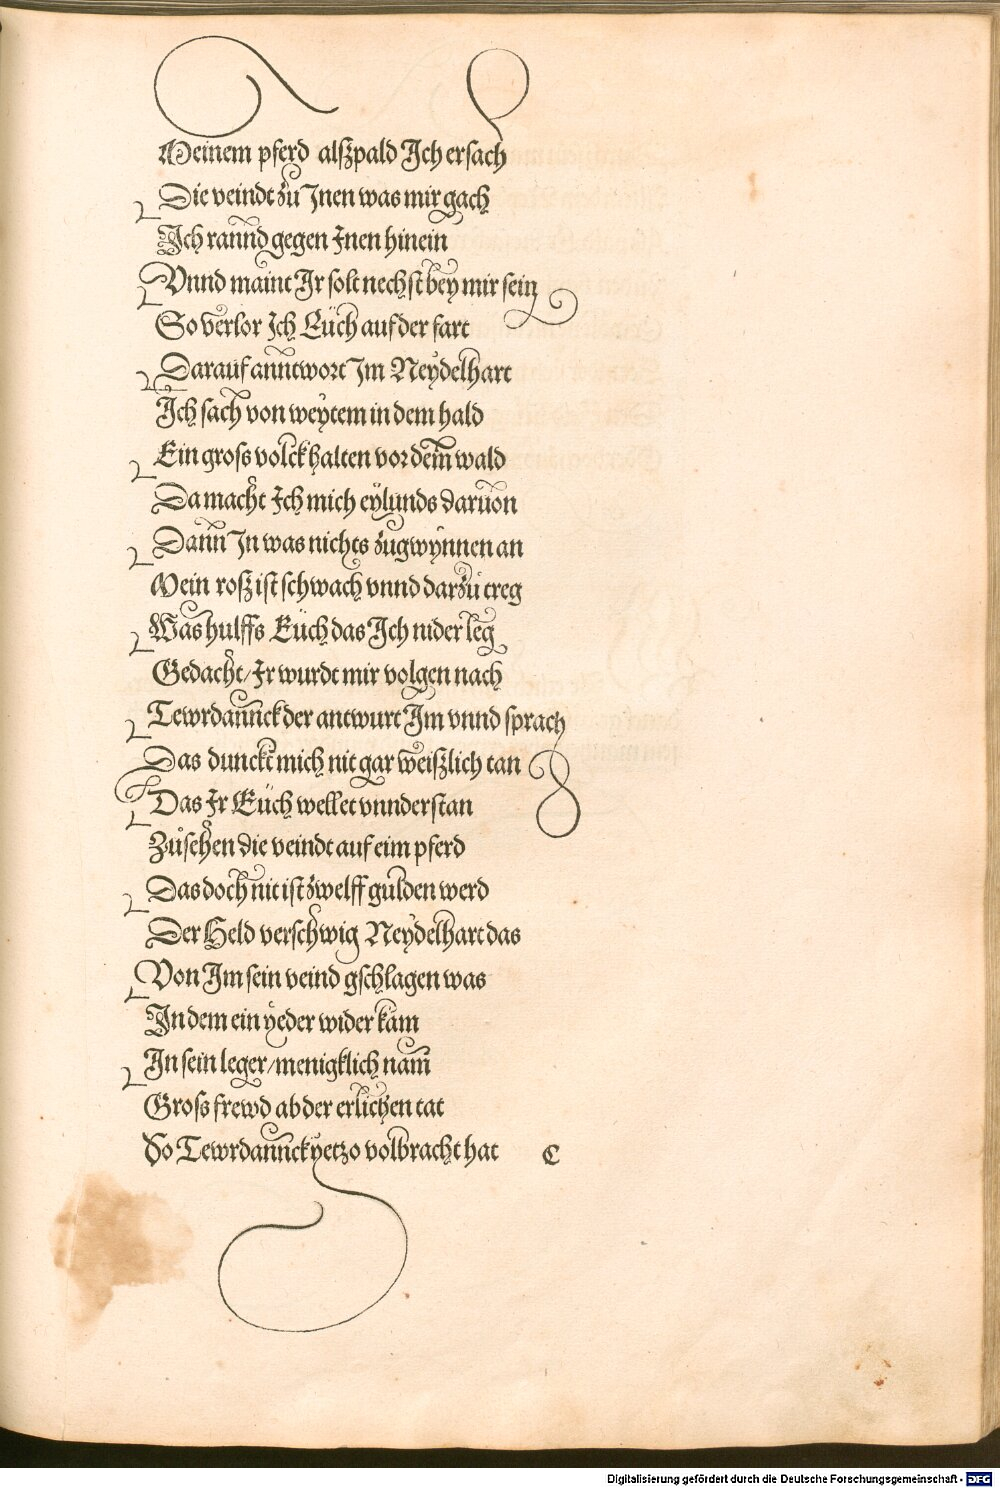 Meinem pferd alſzpald Ich erſach
Die veindt zu Inen was mir gach
Ich rannd gegen Inen hinein
Vnnd maint Ir ſolt nechſt bey mir ſein
So verlor Ich Eüch auf der fart
Darauf anntwort Im Neÿdelhart
Ich ſach von weÿtem in dem hald
Ein groſs volck halten vor dem wald
Da macht Ich mich eÿlunds daruon
Dann In was nichts zugwÿnnen an
Mein roſz iſt ſchwach vnnd darzu treg
Was hulffs Eüch das Ich nider leg
Gedacht/ Ir wurdt mir volgen nach
Tewrdannck der antwurt Im vnnd ſprach
Das dunckt mich nit gar weiſzlich tan
Das Ir Eüch wellet vnnderſtan
Zůſehen die veindt auf eim pferd
Das doch nit iſt zwelff gulden werd
Der Held verſchwig Neÿdelhart das
Von Im ſein veind gſchlagen was
In dem ein ÿeder wider kam
In ſein leger/ menigklich nam
Groſs frewd ab der erlichen tat
So Tewrdannck ÿetzo volbracht hat C
Digitalisierung gefördert durch die Deutsche Forschungsgemeinschaft - DFG